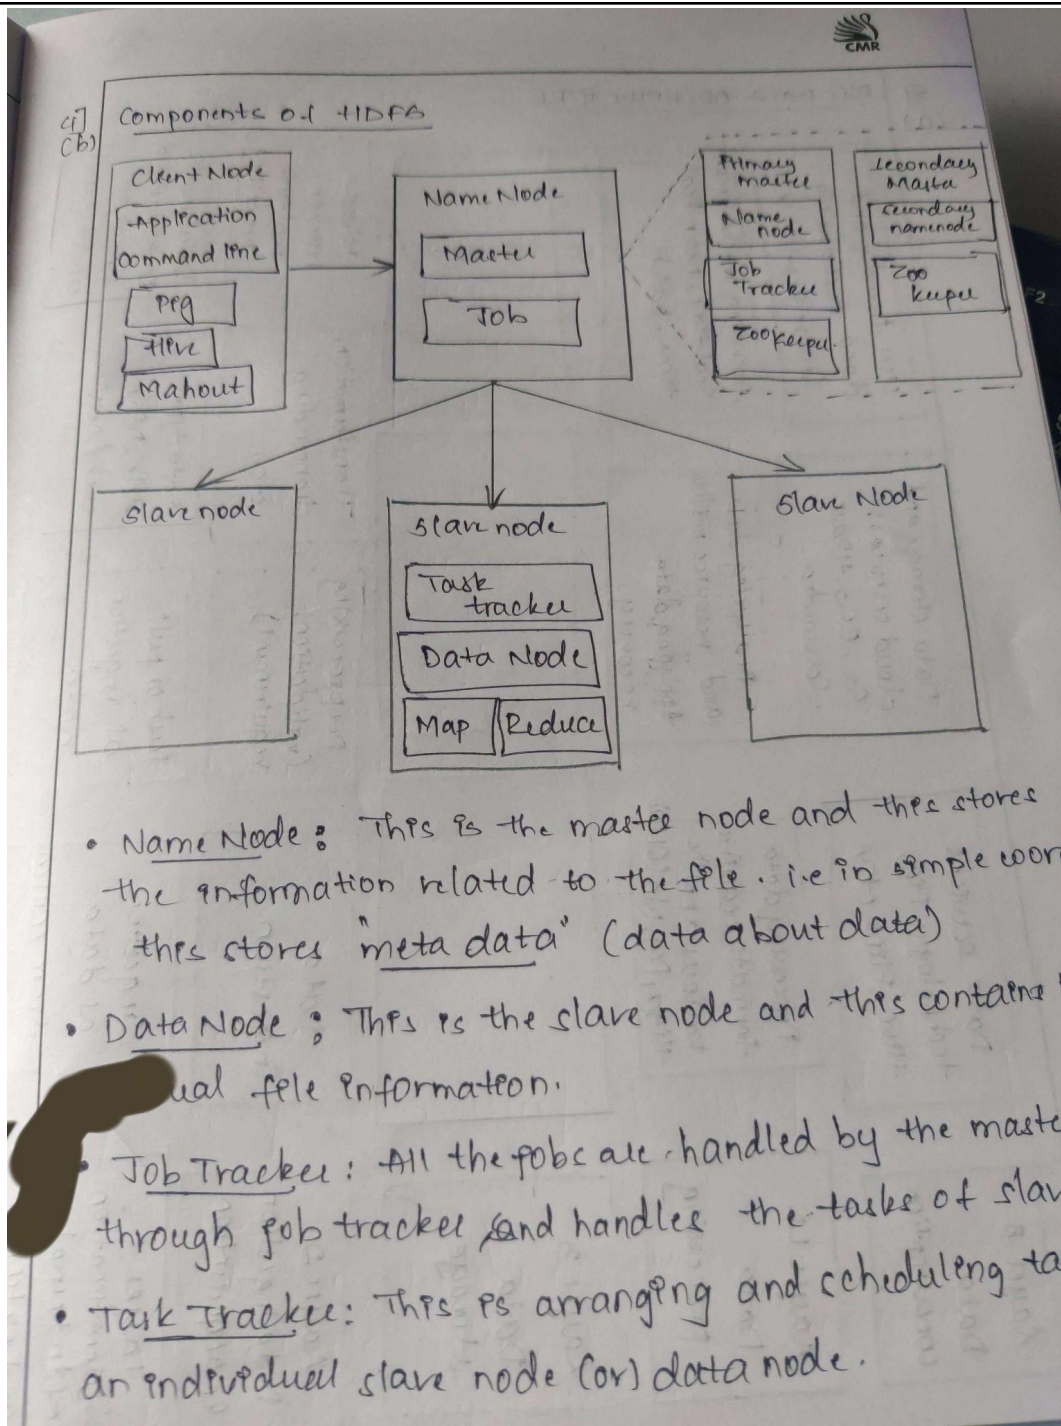 CMR
4]
(b)
Components of HDFS
Client Node
Application
command line
Pig
Hive
Mahout
Name Node
Master
Job
Primary
master
Name
node
Job
Tracker
Zookeeper
Secondary
Master
Secondary
namenode
Zoo
keeper
F2
Slave node
Slave node
Task
tracker
Data Node
Map Reduce
Slave Node
• Name Node : This is the master node and this stores
the information related to the file . i.e in simple
this stores "meta data" (data about data)
• Data Node : This is the slave node and this contains
ual file information.
• Job Tracker : All the jobs are handled by the maste
through job tracker and handles the tasks of slav
• Task Tracker : This is arranging and scheduling ta
an individual slave node (or) data node.